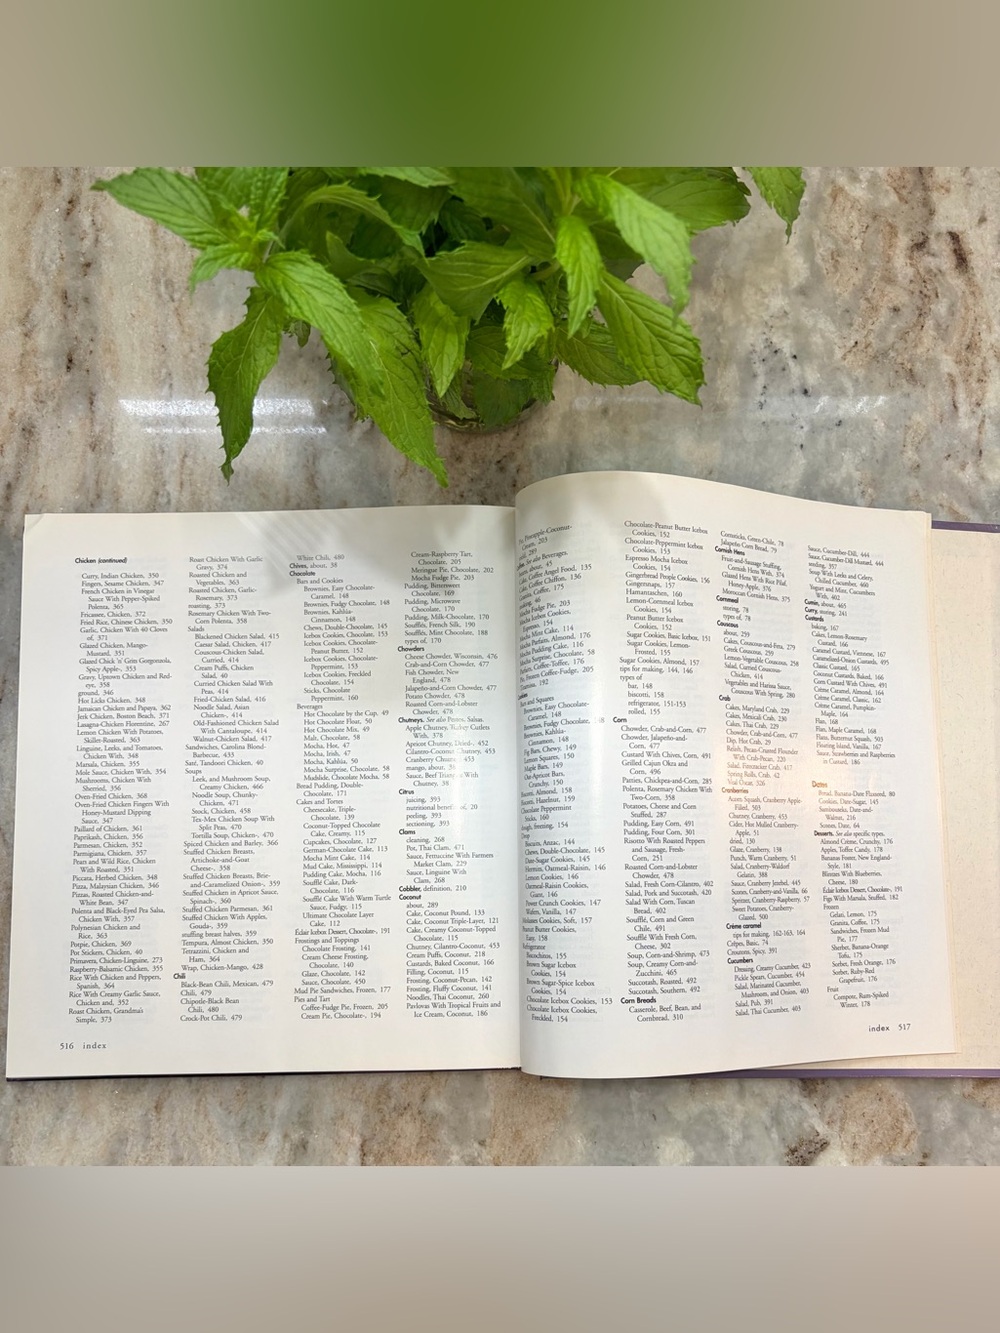 Chicken (continued)
Curry, Indian Chicken, 350
Fingers, Sesame Chicken, 347
French Chicken in Vinegar
Sauce With Pepper-Spiked
Polenta, 365
Fricassee, Chicken, 372
Fried Rice, Chinese Chicken, 350
Garlic, Chicken With 40 Cloves
of, 371
Glazed Chicken, Mango-
Mustard, 351
Glazed Chick 'n' Grits Gorgonzola,
Spicy Apple-, 353
Gravy, Uptown Chicken and Red-
eye, 358
ground, 346
Hot Licks Chicken, 348
Jamaican Chicken and Papaya, 362
Jerk Chicken, Boston Beach, 371
Lasagna-Chicken Florentine, 267
Lemon Chicken With Potatoes,
Skillet-Roasted, 363
Linguine, Leeks, and Tomatoes,
Chicken With, 348
Marsala, Chicken, 355
Mole Sauce, Chicken With, 354
Mushrooms, Chicken With
Sherried, 356
Oven-Fried Chicken, 368
Oven-Fried Chicken Fingers With
Honey-Mustard Dipping
Sauce, 347
Paillard of Chicken, 361
Paprikash, Chicken, 356
Parmesan, Chicken, 352
Parmigiana, Chicken, 357
Pears and Wild Rice, Chicken
With Roasted, 351
Piccata, Herbed Chicken, 348
Pizza, Malaysian Chicken, 346
Pizzas, Roasted-Chicken-and-
White Bean, 347
Polenta and Black-Eyed Pea Salsa,
Chicken With, 357
Polynesian Chicken and
Rice, 363
Potpie, Chicken, 369
Pot Stickers, Chicken, 40
Primavera, Chicken-Linguine, 273
Raspberry-Balsamic Chicken, 355
Rice With Chicken and Peppers,
Spanish, 364
Rice With Creamy Garlic Sauce,
Chicken and, 352
Roast Chicken, Grandma's
Simple, 373
Roast Chicken With Garlic
Gravy, 374
Roasted Chicken and
Vegetables, 363
Roasted Chicken, Garlic-
Rosemary, 373
roasting, 373
Rosemary Chicken With Two-
Corn Polenta, 358
Salads
Blackened Chicken Salad, 415
Caesar Salad, Chicken, 417
Couscous-Chicken Salad,
Curried, 414
Cream Puffs, Chicken
Salad, 40
Curried Chicken Salad With
Peas, 414
Fried-Chicken Salad, 416
Noodle Salad, Asian
Chicken-, 414
Old-Fashioned Chicken Salad
With Cantaloupe, 414
Walnut-Chicken Salad, 417
Sandwiches, Carolina Blond-
Barbecue, 433
Saté, Tandoori Chicken, 40
Soups
Leek, and Mushroom Soup,
Creamy Chicken, 466
Noodle Soup, Chunky-
Chicken, 471
Stock, Chicken, 458
Tex-Mex Chicken Soup With
Split Peas, 470
Tortilla Soup, Chicken-, 470
Spiced Chicken and Barley, 366
Stuffed Chicken Breasts,
Artichoke-and-Goat
Cheese-, 358
Stuffed Chicken Breasts, Brie-
and-Caramelized Onion-, 359
Stuffed Chicken in Apricot Sauce,
Spinach-, 360
Stuffed Chicken Parmesan, 361
Stuffed Chicken With Apples,
Gouda-, 359
stuffing breast halves, 359
Tempura, Almost Chicken, 350
Terrazzini, Chicken and
Ham, 364
Wrap, Chicken-Mango, 428
Chili
Black-Bean Chili, Mexican, 479
Chili, 479
Chipotle-Black Bean
Chili, 480
Crock-Pot Chili, 479
White Chili, 480
Chives, about, 38
Chocolate
Bars and Cookies
Brownies, Easy Chocolate-
Caramel, 148
Brownies, Fudgy Chocolate, 148
Brownies, Kahlúa-
Cinnamon, 148
Chews, Double-Chocolate, 145
Icebox Cookies, Chocolate, 153
Icebox Cookies, Chocolate-
Peanut Butter, 152
Icebox Cookies, Chocolate-
Peppermint, 153
Icebox Cookies, Freckled
Chocolate, 154
Sticks, Chocolate
Peppermint, 160
Beverages
Hot Chocolate by the Cup, 49
Hot Chocolate Float, 50
Hot Chocolate Mix, 49
Malt, Chocolate, 58
Mocha, Hot, 47
Mocha, Irish, 47
Mocha, Kahlúa, 50
Mocha Surprise, Chocolate, 58
Mudslide, Chocolate Mocha, 58
Bread Pudding, Double-
Chocolate, 171
Cakes and Tortes
Cheesecake, Triple-
Chocolate, 139
Coconut-Topped Chocolate
Cake, Creamy, 115
Cupcakes, Chocolate, 127
German-Chocolate Cake, 113
Mocha Mint Cake, 114
Mud Cake, Mississippi, 114
Pudding Cake, Mocha, 116
Soufflé Cake, Dark-
Chocolate, 116
Soufflé Cake With Warm Turtle
Sauce, Fudgy, 115
Ultimate Chocolate Layer
Cake, 112
Éclair Icebox Dessert, Chocolate-, 191
Frostings and Toppings
Chocolate Frosting, 141
Cream Cheese Frosting,
Chocolate, 140
Glaze, Chocolate, 142
Sauce, Chocolate, 450
Mud Pie Sandwiches, Frozen, 177
Pies and Tart
Coffee-Fudge Pie, Frozen, 205
Cream Pie, Chocolate-, 194
Cream-Raspberry Tart,
Chocolate, 205
Meringue Pie, Chocolate, 202
Mocha Fudge Pie, 203
Pudding, Bittersweet
Chocolate, 169
Pudding, Microwave
Chocolate, 170
Pudding, Milk-Chocolate, 170
Soufflés, French Silk, 190
Soufflés, Mint Chocolate, 188
types of, 170
Chowders
Cheese Chowder, Wisconsin, 476
Crab-and-Corn Chowder, 477
Fish Chowder, New
England, 478
Jalapeño-and-Corn Chowder, 477
Potato Chowder, 478
Roasted Corn-and-Lobster
Chowder, 478
Chutneys. See also Pestos, Salsas.
Apple Chutney, Turkey Cutlets
With, 378
Apricot Chutney, Dried-, 452
Cilantro-Coconut Chutney, 453
Cranberry Chutney, 453
mango, about, 38
Sauce, Beef Tenderloin With
Chutney, 38
Citrus
juicing, 393
nutritional benefits of, 20
peeling, 393
sectioning, 393
Clams
cleaning, 268
Pot, Thai Clam, 471
Sauce, Fettuccine With Farmers
Market Clam, 229
Sauce, Linguine With
Clam, 268
Cobbler, definition, 210
Coconut
about, 289
Cake, Coconut Pound, 133
Cake, Coconut Triple-Layer, 121
Cake, Creamy Coconut-Topped
Chocolate, 115
Chutney, Cilantro-Coconut, 453
Cream Puffs, Coconut, 218
Custards, Baked Coconut, 166
Filling, Coconut, 115
Frosting, Coconut-Pecan, 142
Frosting, Fluffy Coconut, 141
Noodles, Thai Coconut, 260
Pavlovas With Tropical Fruits and
Ice Cream, Coconut, 186
516 index
Pie, Pineapple-Coconut-
Cream, 203
See also Beverages.
about, 45
Cake, Coffee Angel Food, 135
Cake, Coffee Chiffon, 136
Coffee, 175
Mocha Fudge Pie, 203
Mocha Icebox Cookies,
Espresso, 154
Mocha Mint Cake, 114
Mocha Parfaits, Almond, 176
Mocha Pudding Cake, 116
Mocha Surprise, Chocolate, 58
Parfaits, Coffee-Toffee, 176
Pie, Frozen Coffee-Fudge, 205
Tiramisu, 192
Cookies
Bars and Squares
Brownies, Easy Chocolate-
Caramel, 148
Brownies, Fudgy Chocolate, 148
Brownies, Kahlúa-
Cinnamon, 148
Fig Bars, Chewy, 149
Lemon Squares, 150
Maple Bars, 149
Oat-Apricot Bars,
Crunchy, 150
Biscotti, Almond, 158
Biscotti, Hazelnut, 159
Chocolate Peppermint
Sticks, 160
dough, freezing, 154
Drop
Biscuits, Anzac, 144
Chews, Double-Chocolate, 145
Date-Sugar Cookies, 145
Hermits, Oatmeal-Raisin, 146
Lemon Cookies, 146
Oatmeal-Raisin Cookies,
Giant, 146
Power Crunch Cookies, 147
Wafers, Vanilla, 147
Molasses Cookies, Soft, 157
Peanut Butter Cookies,
Easy, 158
Refrigerator
Baracichos, 155
Brown Sugar Icebox
Cookies, 154
Brown Sugar-Spice Icebox
Cookies, 154
Chocolate Icebox Cookies, 153
Chocolate Icebox Cookies,
Freckled, 154
Chocolate-Peanut Butter Icebox
Cookies, 152
Chocolate-Peppermint Icebox
Cookies, 153
Espresso Mocha Icebox
Cookies, 154
Gingerbread People Cookies, 156
Gingersnaps, 157
Hamantaschen, 160
Lemon-Cornmeal Icebox
Cookies, 154
Peanut Butter Icebox
Cookies, 152
Sugar Cookies, Basic Icebox, 151
Sugar Cookies, Lemon-
Frosted, 155
Sugar Cookies, Almond, 157
tips for making, 144, 146
types of
bar, 148
biscotti, 158
refrigerator, 151-153
rolled, 155
Corn
Chowder, Crab-and-Corn, 477
Chowder, Jalapeño-and-
Corn, 477
Custard With Chives, Corn, 491
Grilled Cajun Okra and
Corn, 496
Parties, Chickpea-and-Corn, 285
Polenta, Rosemary Chicken With
Two-Corn, 358
Potatoes, Cheese and Corn
Stuffed, 287
Pudding, Easy Corn, 491
Pudding, Four Corn, 301
Risotto With Roasted Peppers
and Sausage, Fresh-
Corn, 251
Roasted Corn-and-Lobster
Chowder, 478
Salad, Fresh Corn-Cilantro, 402
Salad, Pork and Succotash, 420
Salad With Corn, Tuscan
Bread, 402
Soufflé, Corn and Green
Chile, 491
Soufflé With Fresh Corn,
Cheese, 302
Soup, Corn-and-Shrimp, 473
Soup, Creamy Corn-and-
Zucchini, 465
Succotash, Roasted, 492
Succotash, Southern, 492
Corn Breads
Casserole, Beef, Bean, and
Cornbread, 310
Cornsticks, Green-Chile, 78
Jalapeño Corn Bread, 79
Cornish Hens
Fruit-and-Sausage Stuffing,
Cornish Hens With, 374
Glazed Hens With Rice Pilaf,
Honey-Apple, 376
Moroccan Cornish Hens, 375
Cornmeal
storing, 78
types of, 78
Couscous
about, 259
Cakes, Couscous-and-Feta, 279
Greek Couscous, 259
Lemon-Vegetable Couscous, 258
Salad, Curried Couscous-
Chicken, 414
Vegetables and Harissa Sauce,
Couscous With Spring, 280
Crab
Cakes, Maryland Crab, 229
Cakes, Mexicali Crab, 230
Cakes, Thai Crab, 229
Chowder, Crab-and-Corn, 477
Dip, Hot Crab, 29
Relish, Pecan-Crusted Flounder
With Crab-Pecan, 220
Salad, Firecracker Crab, 417
Spring Rolls, Crab, 42
Veal Oscar, 326
Cranberries
Acorn Squash, Cranberry Apple-
Filled, 503
Chutney, Cranberry, 453
Cider, Hot Mulled Cranberry-
Apple, 51
dried, 130
Glaze, Cranberry, 138
Punch, Warm Cranberry, 51
Salad, Cranberry-Waldorf
Gelatin, 388
Sauce, Cranberry Jezebel, 445
Scones, Cranberry-and-Vanilla, 66
Spritzer, Cranberry-Raspberry, 57
Sweet Potatoes, Cranberry-
Glazed, 500
Crème caramel
tips for making, 162-163, 164
Crêpes, Basic, 74
Croutons, Spicy, 391
Cucumbers
Dressing, Creamy Cucumber, 423
Pickle Spears, Cucumber, 454
Salad, Marinated Cucumber,
Mushroom, and Onion, 403
Salad, Pub, 391
Salad, Thai Cucumber, 403
Sauce, Cucumber-Dill, 444
Sauce, Cucumber-Dill Mustard, 444
seeding, 357
Soup With Leeks and Celery,
Chilled Cucumber, 460
Yogurt and Mint, Cucumbers
With, 402
Cumin, about, 465
Curry, storing, 241
Custards
baking, 167
Cakes, Lemon-Rosemary
Custard, 166
Caramel Custard, Vietnamese, 167
Caramelized-Onion Custards, 495
Classic Custard, 165
Coconut Custards, Baked, 166
Corn Custard With Chives, 491
Crème Caramel, Almond, 164
Crème Caramel, Classic, 162
Crème Caramel, Pumpkin-
Maple, 164
Flan, 168
Flan, Maple Caramel, 168
Flans, Butternut Squash, 503
Floating Island, Vanilla, 167
Sauce, Strawberries and Raspberries
in Custard, 186
Dates
Bread, Banana-Date Flaxseed, 80
Cookies, Date-Sugar, 145
Sunsweets, Date-and-
Walnut, 216
Scones, Date, 64
Desserts. See also specific types.
Almond Crème, Crunchy, 176
Apples, Toffee Candy, 178
Bananas Foster, New England-
Style, 181
Blintzes With Blueberries,
Cheese, 180
Éclair Icebox Dessert, Chocolate-, 191
Figs With Marsala, Stuffed, 182
Frozen
Gelati, Lemon, 175
Granita, Coffee, 175
Sandwiches, Frozen Mud
Pie, 177
Sherbet, Banana-Orange
Tofu, 175
Sorbet, Fresh Orange, 176
Sorbet, Ruby-Red
Grapefruit, 176
Fruit
Compote, Rum-Spiked
Winter, 178
index 517